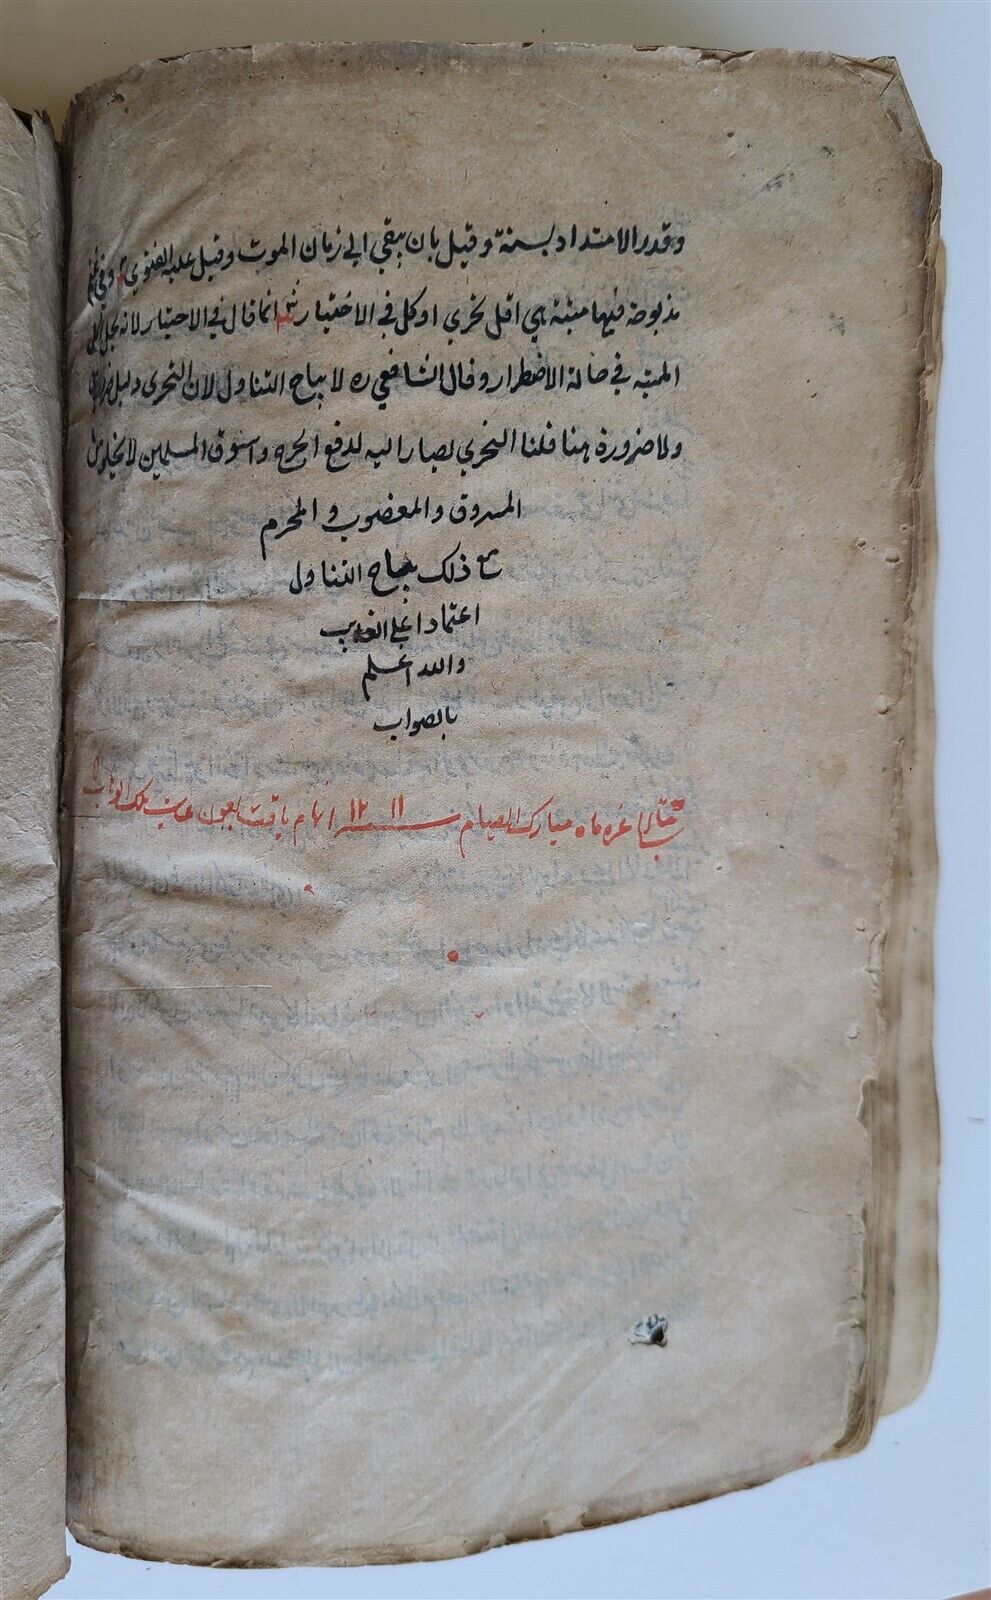 وقدر الامتداد بسنة وقيل بان يبقي الي زمان الموت وقيل عليه الفتوي م وفي غنم
مذبوحة فيها ميتة هي اقل تحري اوكل في الاختيار ش انما قال في الاختيار لانه يحل اكل
الميته في حالة الاضطرار وقال الشافعي ره لا يباح التناول لان التحري دليل ضروري
ولا ضرورة هنا قلنا التحري يصار اليه لدفع الحرج واسوق المسلمين لا يخلو عن
المسروق والمغصوب والمحرم
مع ذلك يباح التناول
اعتمادا علي الغالب
والله اعلم
بالصواب
غره ماه مبارك الصيام ١١ ١٢ اتمام يافت بعون ملك الوهاب